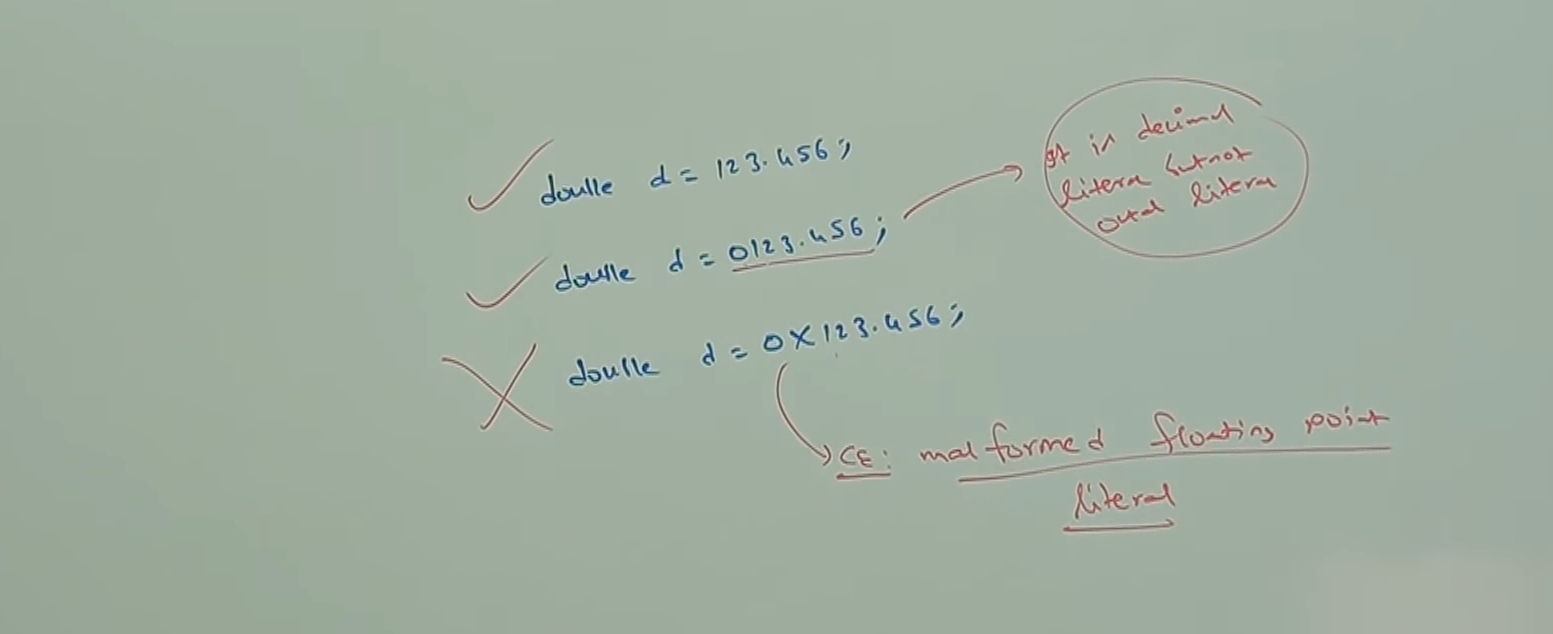 double d = 123.456;
double d = 0123.456;
It is decimal
literal but not
octal literal
double d = 0X123.456;
CE: malformed floating point
literal